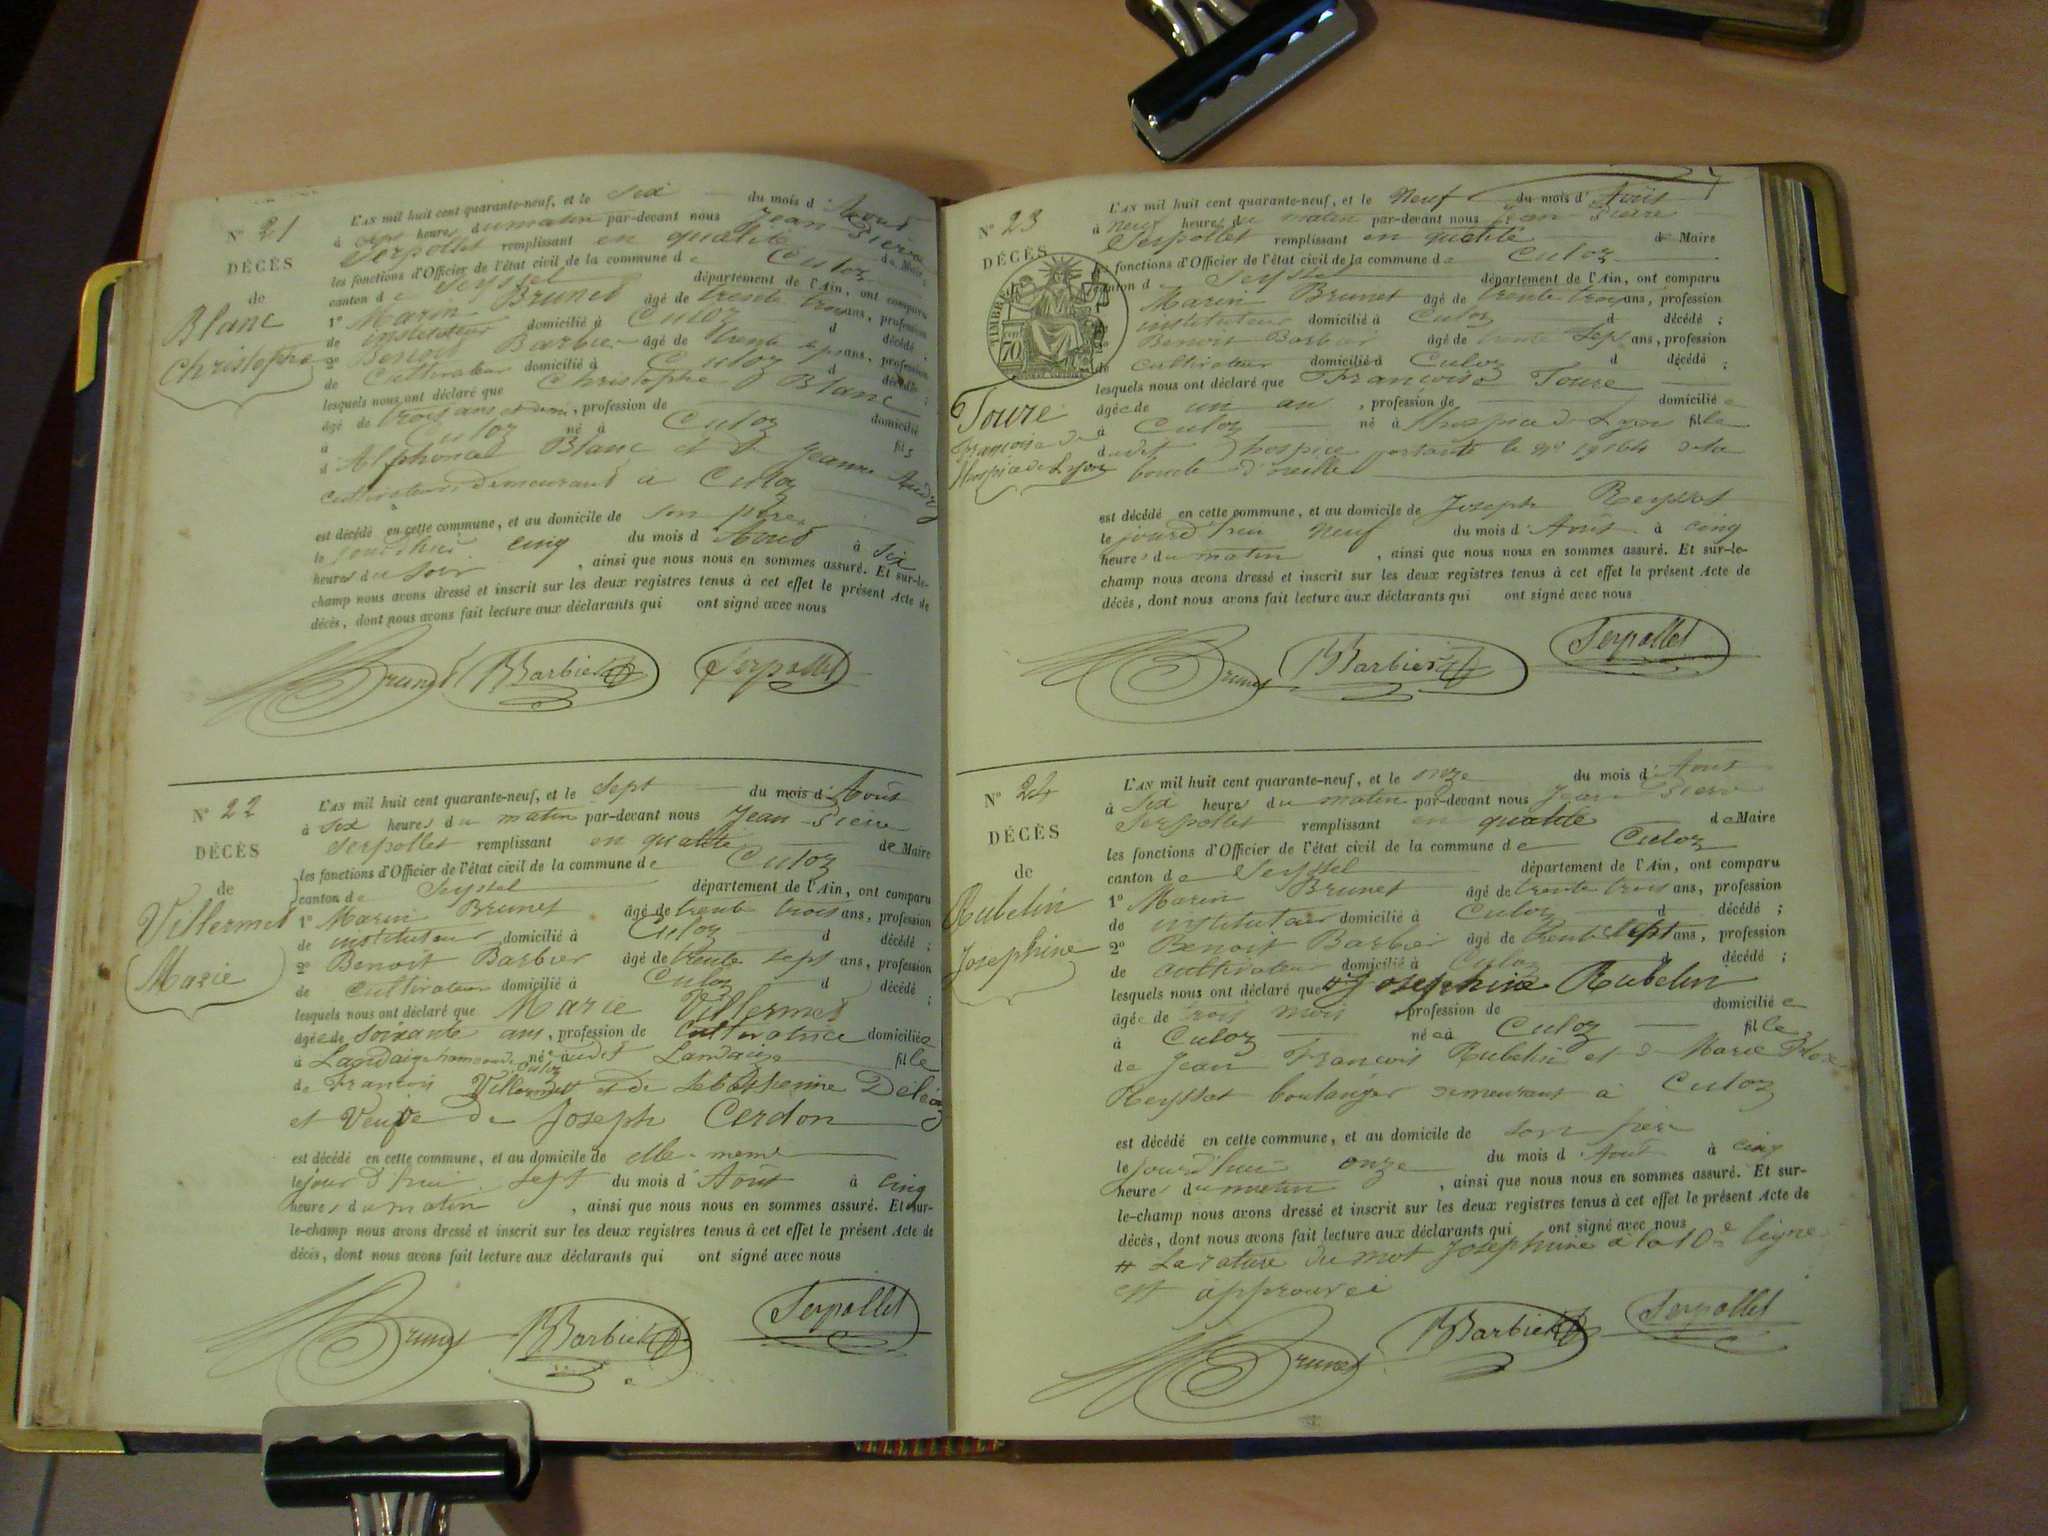 N° 21
DÉCÈS
de
Blanc
Christophe
L'AN mil huit cent quarante-neuf, et le six du mois d'Aout
à onze heures du matin par-devant nous Jean-Pierre
Serpollet remplissant en qualité de Maire
les fonctions d'Officier de l'état civil de la commune de Culoz
canton de Seyssel département de l'Ain, ont comparu
1° Marin Brunet âgé de trente trois ans, profession
de instituteur domicilié à Culoz d décédé ;
2° Benoit Barbier âgé de trente sept ans, profession
de Cultivateur domicilié à Culoz d décédé ;
lesquels nous ont déclaré que Christophe Blanc
âgé de trois ans et demi, profession de domicilié
à Culoz né à Culoz fils
d'Alphonse Blanc et de Jeanne
cultivateurs demeurant à Culoz
est décédé en cette commune, et au domicile de son père
le cinq du mois d'Aout à six
heures du soir, ainsi que nous nous en sommes assuré. Et sur-le-
champ nous avons dressé et inscrit sur les deux registres tenus à cet effet le présent Acte de
décès, dont nous avons fait lecture aux déclarants qui ont signé avec nous
Brunet Barbier Serpollet
N° 22
DÉCÈS
de
Villermet
Marie
L'AN mil huit cent quarante-neuf, et le sept du mois d'Août
à six heures du matin par-devant nous Jean-Pierre
Serpollet remplissant en qualité de Maire
les fonctions d'Officier de l'état civil de la commune de Culoz
canton de Seyssel département de l'Ain, ont comparu
1° Marin Brunet âgé de trente trois ans, profession
de instituteur domicilié à Culoz d décédé ;
2° Benoit Barbier âgé de trente sept ans, profession
de Cultivateur domicilié à Culoz d décédé ;
lesquels nous ont déclaré que Marie Villermet
âgée de soixante ans, profession de Cultivatrice domiciliée
à Landaize hameau de Culoz née audit Landaize fille
de François Villermet et de
et Veuve de Joseph Cerdon
est décédé en cette commune, et au domicile de elle-meme
le jour d'hui sept du mois d'Août à cinq
heures du matin, ainsi que nous nous en sommes assuré. Et sur-
le-champ nous avons dressé et inscrit sur les deux registres tenus à cet effet le présent Acte de
décès, dont nous avons fait lecture aux déclarants qui ont signé avec nous
Brunet Barbier Serpollet
N° 23
DÉCÈS
TIMBRE
70
Toure
Françoise de
l'hospice de Lyon
L'AN mil huit cent quarante-neuf, et le Neuf du mois d'Août
à neuf heures du matin par-devant nous Jean Pierre
Serpollet remplissant en qualité de Maire
les fonctions d'Officier de l'état civil de la commune de Culoz
canton de Seyssel département de l'Ain, ont comparu
Marin Brunet âgé de trente trois ans, profession
instituteur domicilié à Culoz d décédé ;
Benoit Barbier âgé de trente sept ans, profession
de cultivateur domicilié à Culoz d décédé ;
lesquels nous ont déclaré que Françoise Toure
âgée de un an, profession de domiciliée
à Culoz né à l'hospice de Lyon fille
dudit hospice portante le n° 19164 de la
boucle d'oreille
est décédé en cette commune, et au domicile de Joseph Reyssat
le jourd'hui neuf du mois d'Aout à cinq
heures du matin, ainsi que nous nous en sommes assuré. Et sur-le-
champ nous avons dressé et inscrit sur les deux registres tenus à cet effet le présent Acte de
décès, dont nous avons fait lecture aux déclarants qui ont signé avec nous
Brunet Barbier Serpollet
N° 24
DÉCÈS
de
Rubelin
Josephine
L'AN mil huit cent quarante-neuf, et le onze du mois d'Aout
à six heures du matin par-devant nous Jean Pierre
Serpollet remplissant en qualité de Maire
les fonctions d'Officier de l'état civil de la commune de Culoz
canton de Seyssel département de l'Ain, ont comparu
1° Marin Brunet âgé de trente trois ans, profession
de instituteur domicilié à Culoz d décédé ;
2° Benoit Barbier âgé de trente sept ans, profession
de cultivateur domicilié à Culoz d décédé ;
lesquels nous ont déclaré que # Josephine Rubelin
âgée de trois mois profession de domiciliée
à Culoz née à Culoz fille
de Jean François Rubelin et de Marie
Reyssat boulanger demeurant à Culoz
est décédé en cette commune, et au domicile de son père
le jourd'hui onze du mois d'Aout à cinq
heures du matin, ainsi que nous nous en sommes assuré. Et sur-
le-champ nous avons dressé et inscrit sur les deux registres tenus à cet effet le présent Acte de
décès, dont nous avons fait lecture aux déclarants qui ont signé avec nous
# La rature du mot Josephine à la 10e ligne
est approuvée
Brunet Barbier Serpollet